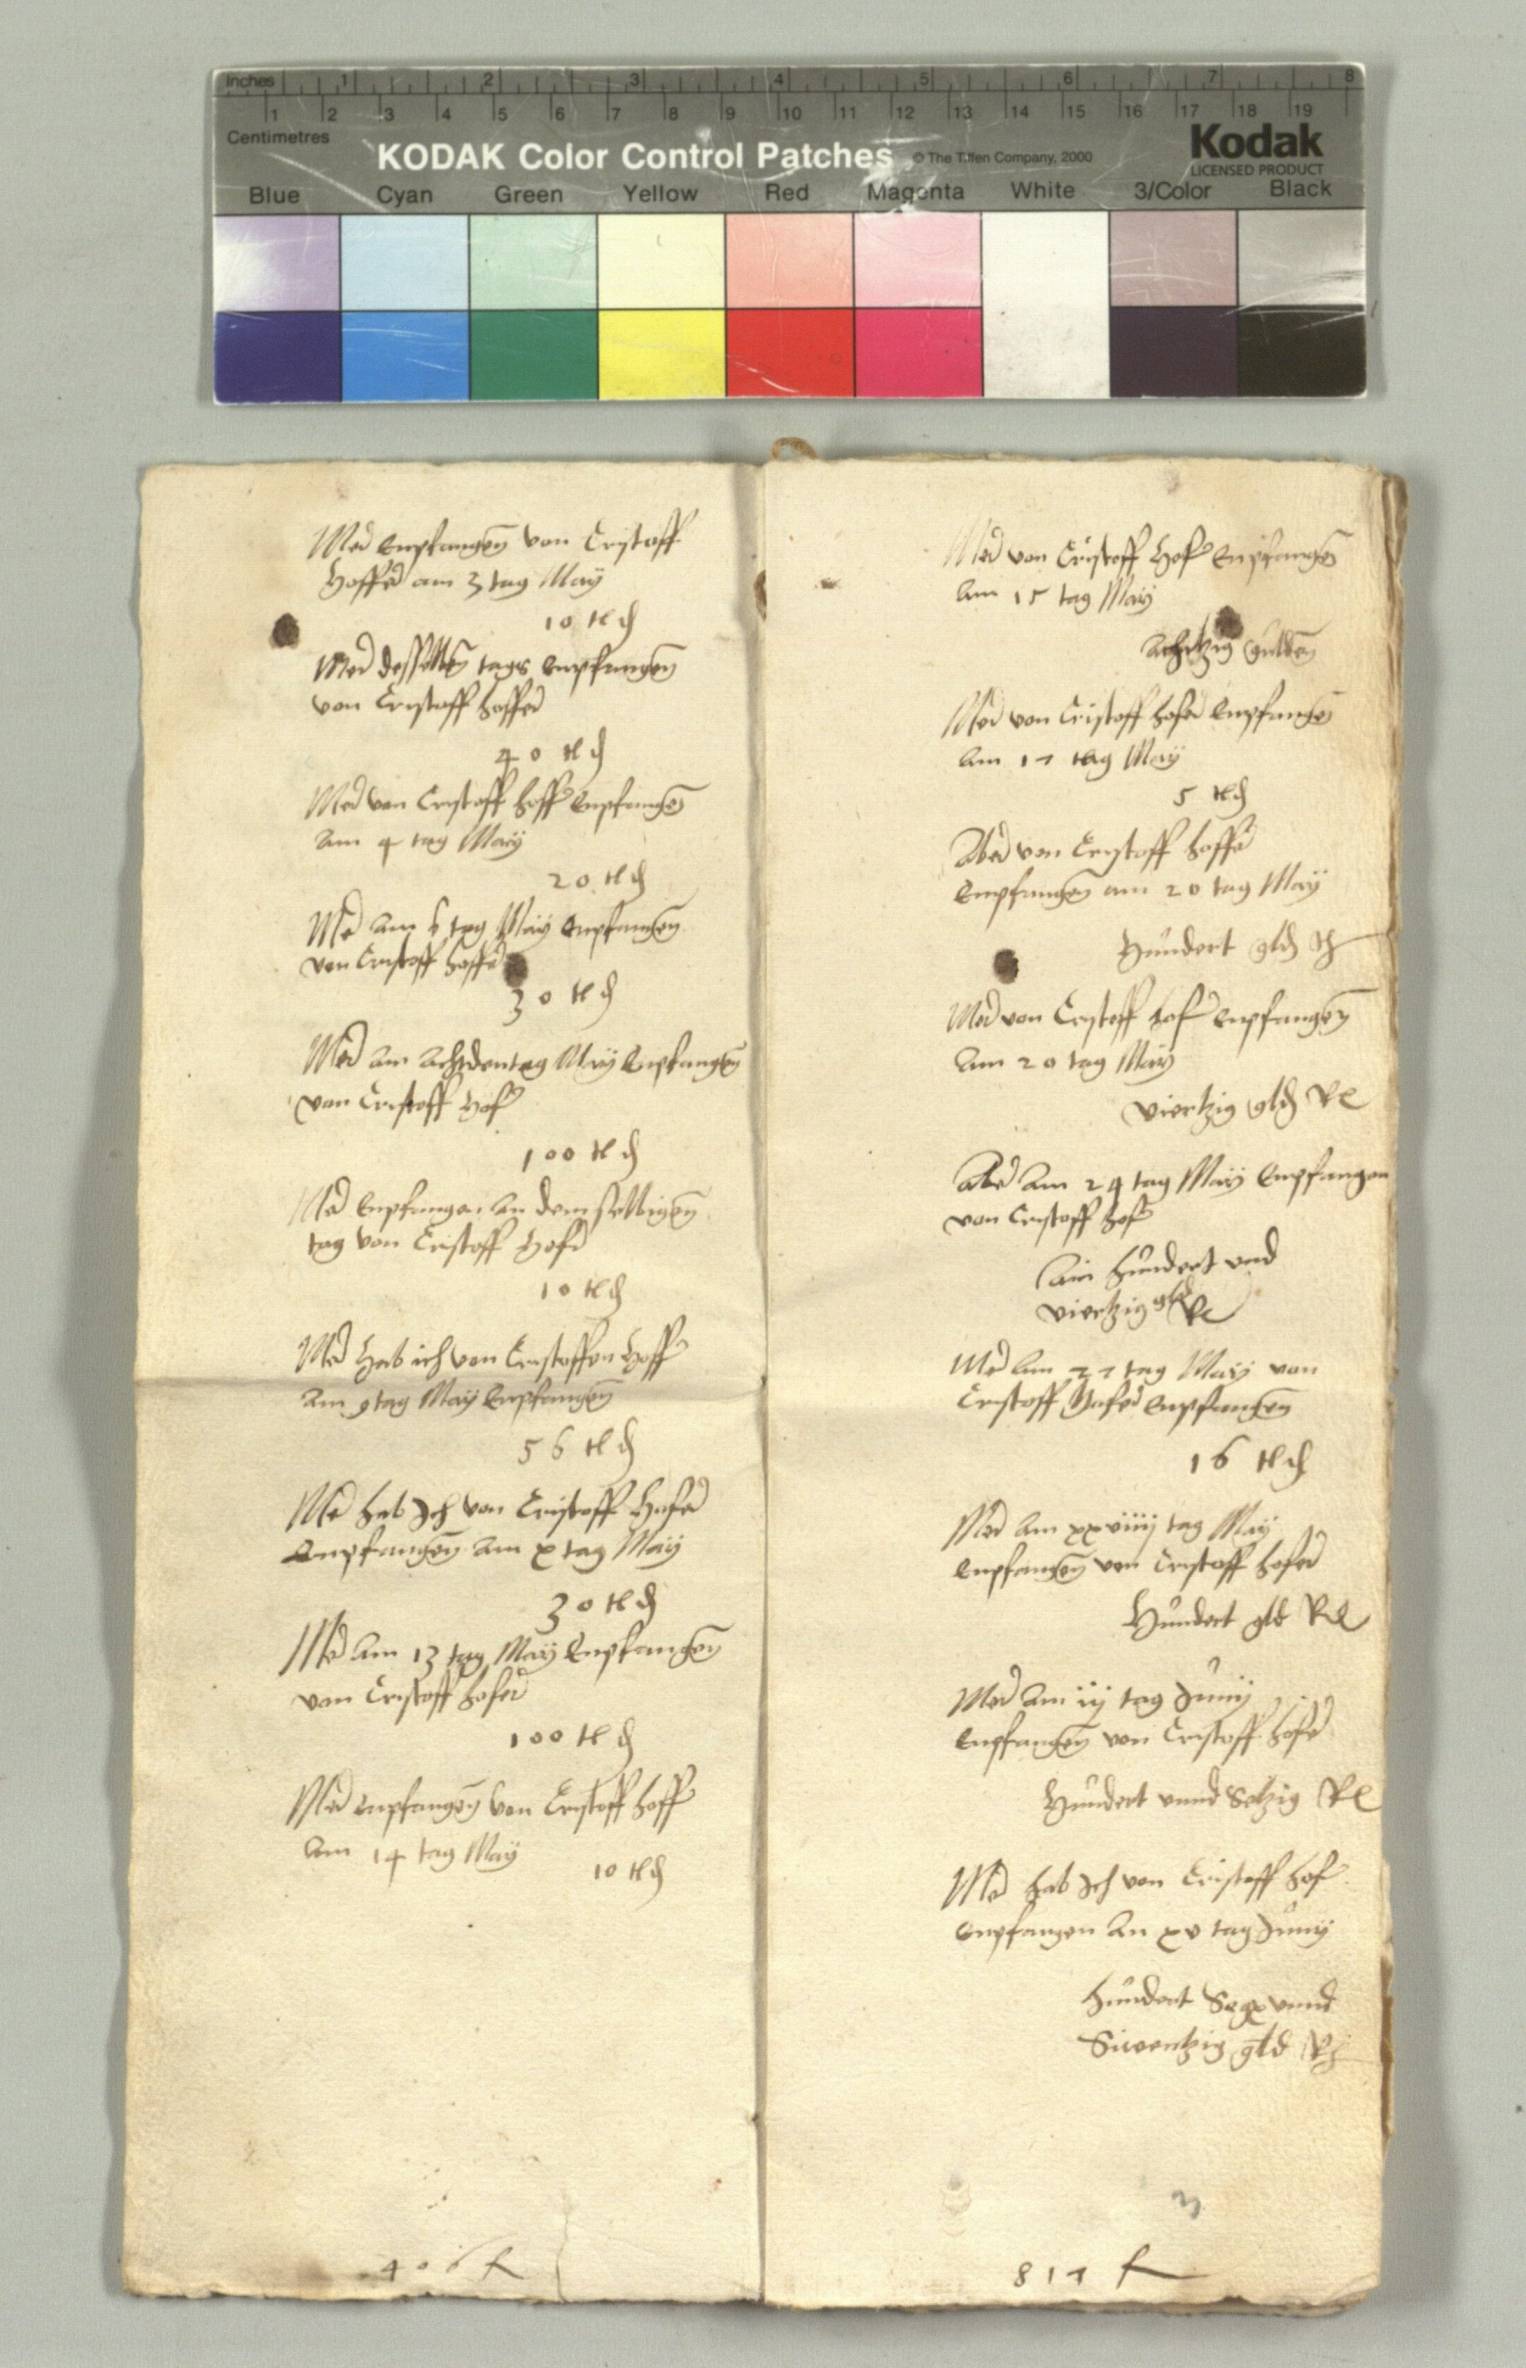 Inches 1 2 3 4 5 6 7 8
1 2 3 4 5 6 7 8 9 10 11 12 13 14 15 16 17 18 19
Centimetres
KODAK Color Control Patches © The Tiffen Company, 2000
Kodak
LICENSED PRODUCT
Blue Cyan Green Yellow Red Magenta White 3/Color Black
Mer Enpfangen von Cristoff
Hoffer am 3 tag May
10 tl d
Mer desselben tags Enpfangen
von Cristoff hoffer
40 tl d
Mer von Cristoff hoffer Enpfangen
am 4 tag May
20 tl d
Mer am 6 tag May Enpfangen
von Cristoff hoffer
30 tl d
Mer am achtden tag May Enpfangen
von Cristoff Hofer
100 tl d
Mer Enpfangen an dem selbigen
tag von Cristoff Hofer
10 tl d
Mer hab ich von Cristoffen Hoffer
am 9 tag May Enpfangen
56 tl d
Mer hab Ich von Cristoff Hofer
Enpfangen am x tag May
30 tl d
Mer am 13 tag May Enpfangen
von Cristoff hofer
100 tl d
Mer enpfangen von Cristoff hoffer
am 14 tag May
10 tl d
406 f
Mer von Cristoff Hofer Enpfangen
am 15 tag May
achtzig gulden
Mer von Cristoff hofer Enpfangen
am 17 tag May
5 tl d
Aber von Cristoff hoffer
Empfangen am 20 tag May
Hundert gld
Mer von Cristoff hofer Enpfangen
am 20 tag May
viertzig gld Re
Aber am 24 tag May Enpfangen
von Cristoff hofer
Ain hundert und
viertzig gld Re
Mer am 27 tag May von
Cristoff Hofer Enpfangen
16 tl d
Mer am xxviiij tag May
Enpfangen von Cristoff hofer
Hundert gld Re
Mer am iij tag Juny
Enpfangen von Cristoff hofer
Hundert unnd Setzig Re
Mer hab Ich von Cristoff hofer
Enpfangen an xv tag Juny
hundert Segx unnd
Siventzig gld
3
817 f